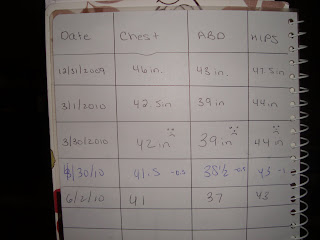 Date Chest ABD HIPS
12/31/2009 46 in. 43 in. 47.5 in
3/1/2010 42.5 in 39 in 44 in
3/30/2010 42 in 39 in 44 in
4/30/10 41.5 -0.5 38 1/2 -0.5 43 -1
6/2/10 41 37 43